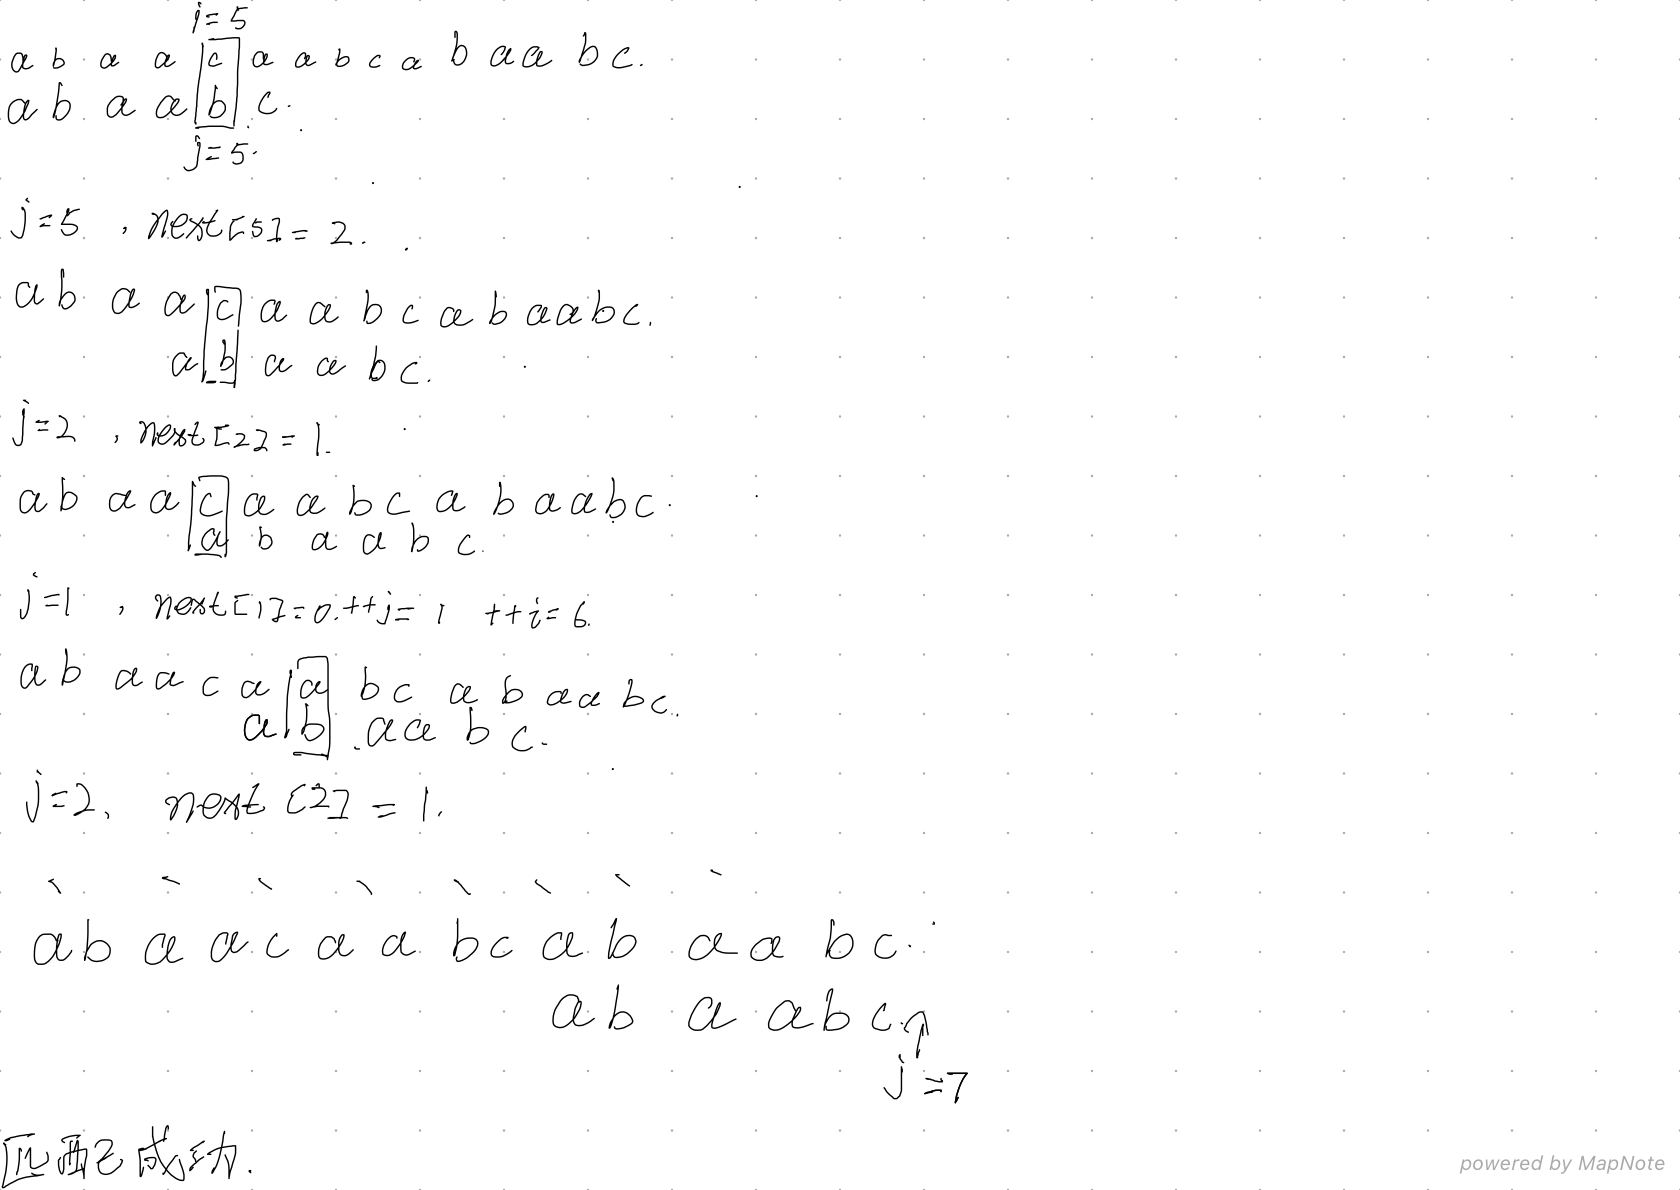 j=5
a b a a c a a b c a b a a b c.
a b a a b c.
j=5.
j=5, next[5]=2.
a b a a c a a b c a b a a b c.
a b a a b c.
j=2, next[2]=1.
a b a a c a a b c a b a a b c.
a b a a b c.
j=1, next[1]=0. ++j=1 ++i=6.
a b a a c a a b c a b a a b c.
a b a a b c.
j=2, next[2]=1.
a b a a c a a b c a b a a b c.
a b a a b c.
j=7
匹配成功.
powered by MapNote